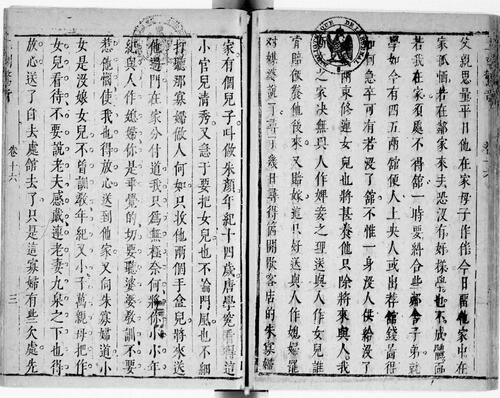 父親思量平日他在家母子作伴今日留他家中在
家孤恓若在鄰家來去恐沒有好樣學也不成體面
若我在家須處不得舘一時要糾合些鄰舍子弟就
學如今有四五兩舘便人上央人或出荐舘錢圖得
如何急卒可有若沒了舘不惟一身沒人供給沒了
兩束修連女兒也將甚養他只除將來與人我
之家决無與人作婢妾之理送與人作女兒誰
肯賠飯養他後來又賠嫁這只好送與人作媳婦罷
對媒婆說了尋了幾日尋得箇開歇客店的朱寡婦
家有個兒子叫做朱顏年紀十四歲唐學究看得這
小官兒清秀又急于要把女兒也不論門風也不細
打聽那寡婦做人何如只收他兩個手盒兒將來送
他過門在家分付道我只為無極奈何將你小小年
紀與人作媳婦你是乖覺的切要聽婆婆教訓不要
惹他惱使我也得放心送到他家又向朱寡婦道小
女是沒娘女兒不曾訓教年紀又小千萬親母把作
女兒看待不要說老夫感戴連老妻九泉之下也得
放心送了自去處舘去了只是這寡婦有些欠處先
卷十六
三